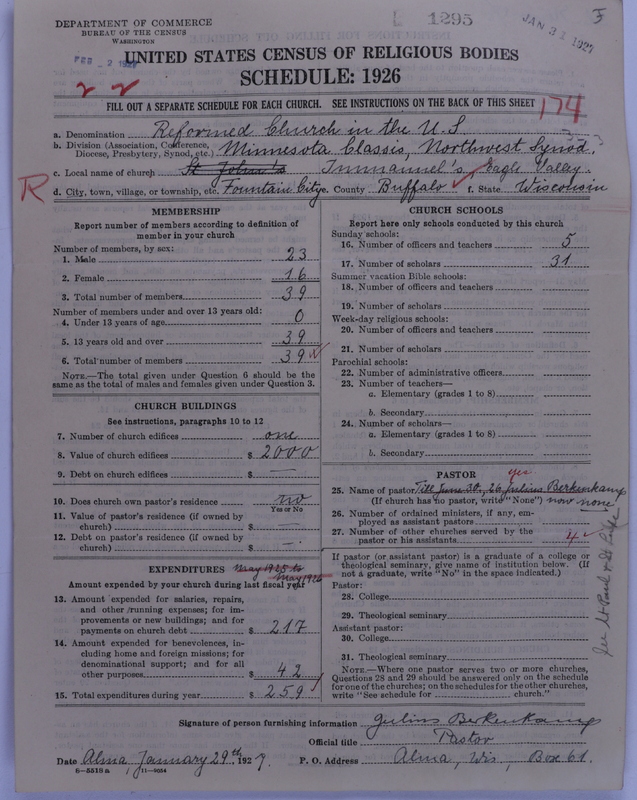 DEPARTMENT OF COMMERCE
BUREAU OF THE CENSUS
WASHINGTON
1295
JAN 31 1927
FEB -2 1927
UNITED STATES CENSUS OF RELIGIOUS BODIES
SCHEDULE: 1926
FILL OUT A SEPARATE SCHEDULE FOR EACH CHURCH. SEE INSTRUCTIONS ON THE BACK OF THIS SHEET
174
a. Denomination Reformed Church in the U.S.
b. Division (Association, Conference, Diocese, Presbytery, Synod, etc.) Minnesota Classis, Northwest Synod.
c. Local name of church St John's Immanuel's, Eagle Valley.
R
d. City, town, village, or township, etc. Fountain City e. County Buffalo f. State Wisconsin
MEMBERSHIP
Report number of members according to definition of
member in your church
Number of members, by sex:
1. Male 23
2. Female 16
3. Total number of members 39
Number of members under and over 13 years old:
4. Under 13 years of age 0
5. 13 years old and over 39
6. Total number of members 39
NOTE.—The total given under Question 6 should be the
same as the total of males and females given under Question 3.
CHURCH BUILDINGS
See instructions, paragraphs 10 to 12
7. Number of church edifices one
8. Value of church edifices $ 2000
9. Debt on church edifices $ —
10. Does church own pastor's residence no
Yes or No
11. Value of pastor's residence (if owned by
church) $ —
12. Debt on pastor's residence (if owned by
church) $ —
EXPENDITURES May 1925 to
May 1926
Amount expended by your church during last fiscal year
13. Amount expended for salaries, repairs,
and other running expenses; for im-
provements or new buildings; and for
payments on church debt $ 217
14. Amount expended for benevolences, in-
cluding home and foreign missions; for
denominational support; and for all
other purposes $ 42
15. Total expenditures during year $ 259
CHURCH SCHOOLS
Report here only schools conducted by this church
Sunday schools:
16. Number of officers and teachers 5
17. Number of scholars 31
Summer vacation Bible schools:
18. Number of officers and teachers
19. Number of scholars
Week-day religious schools:
20. Number of officers and teachers
21. Number of scholars
Parochial schools:
22. Number of administrative officers
23. Number of teachers—
a. Elementary (grades 1 to 8)
b. Secondary
24. Number of scholars—
a. Elementary (grades 1 to 8)
b. Secondary
PASTOR
yes
25. Name of pastor Till June 30, 26, Julius Berkenkamp
(If church has no pastor, write "None") now none
26. Number of ordained ministers, if any, em-
ployed as assistant pastors
27. Number of other churches served by the
pastor or his assistants 4
If pastor (or assistant pastor) is a graduate of a college or
theological seminary, give name of institution below. (If
not a graduate, write "No" in the space indicated.)
Pastor:
28. College
29. Theological seminary
Assistant pastor:
30. College
31. Theological seminary
NOTE.—Where one pastor serves two or more churches,
Questions 28 and 29 should be answered only on the schedule
for one of the churches; on the schedules for the other churches,
write "See schedule for church."
Signature of person furnishing information Julius Berkenkamp
Official title Pastor
Date Alma, January 29th, 1927. P. O. Address Alma, Wis, Box 61.
8—5518a 11—9054